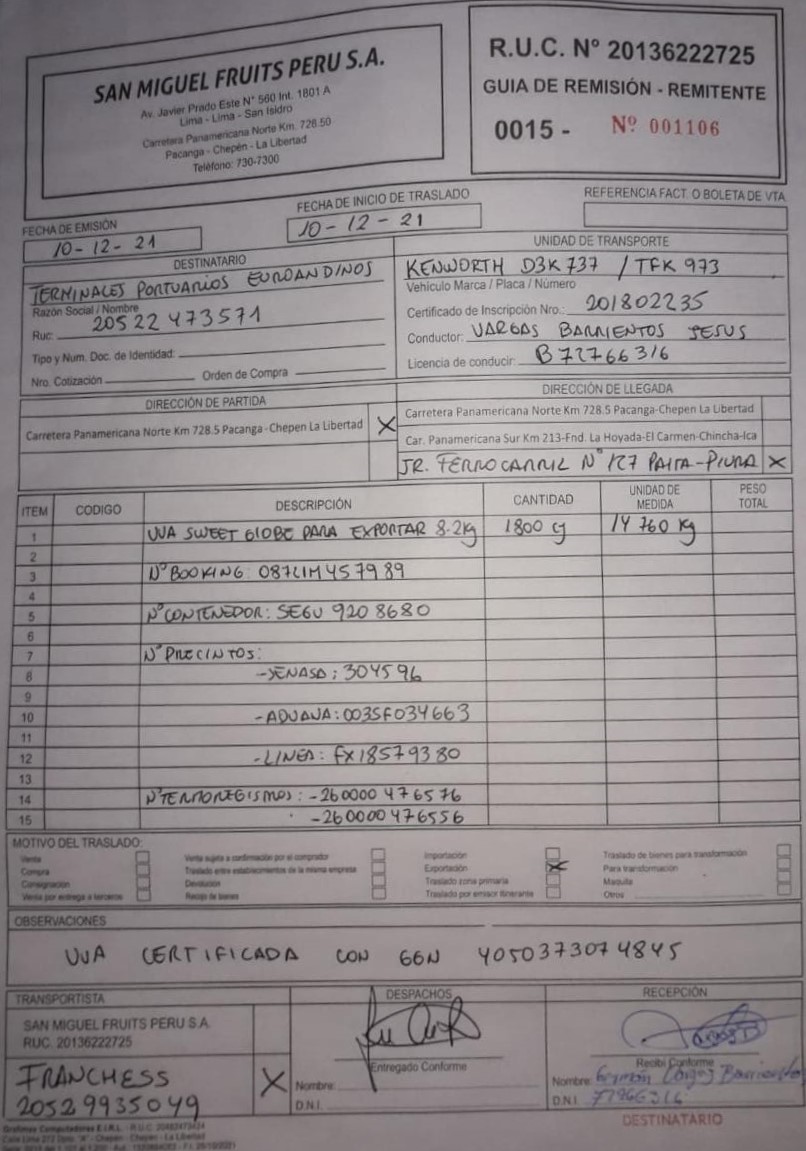 SAN MIGUEL FRUITS PERU S.A.
Av. Javier Prado Este N° 560 Int. 1801 A
Lima - Lima - San Isidro
Carretera Panamericana Norte Km. 728.50
Pacanga - Chepén - La Libertad
Teléfono: 730-7300
R.U.C. N° 20136222725
GUIA DE REMISIÓN - REMITENTE
0015 - Nº 001106
FECHA DE EMISIÓN
10-12-21
FECHA DE INICIO DE TRASLADO
10-12-21
REFERENCIA FACT. O BOLETA DE VTA.
DESTINATARIO
TERMINALES PORTUARIOS EUROANDINOS
Razón Social / Nombre
Ruc: 20522473571
Tipo y Num. Doc. de Identidad:
Nro. Cotización Orden de Compra
UNIDAD DE TRANSPORTE
KENWORTH D3K737 / TFK 973
Vehículo Marca / Placa / Número
Certificado de Inscripción Nro.: 201802235
Conductor: VARGAS BARRIENTOS JESUS
Licencia de conducir: B72766316
DIRECCIÓN DE PARTIDA
Carretera Panamericana Norte Km 728.5 Pacanga-Chepen La Libertad X
DIRECCIÓN DE LLEGADA
Carretera Panamericana Norte Km 728.5 Pacanga-Chepen La Libertad
Car. Panamericana Sur Km 213-Fnd. La Hoyada-El Carmen-Chincha-Ica
JR. FERROCARRIL N° 127 PAITA-PIURA X
ITEM CODIGO DESCRIPCIÓN CANTIDAD UNIDAD DE MEDIDA PESO TOTAL
1 UVA SWEET GLOBE PARA EXPORTAR 8.2kg 1800 cj 14 760 kg
2
3 N° BOOKING: 087LIM457989
4
5 N° CONTENEDOR: SEGU 9208680
6
7 N° PRECINTOS:
8 -SENASA: 304596
9
10 -ADUANA: 003SF034663
11
12 -LINEA: FX18579380
13
14 N° TERMOREGISTROS: -260000476576
15 -260000476556
MOTIVO DEL TRASLADO:
Venta
Compra
Consignación
Venta por entrega a terceros
Venta sujeta a confirmación por el comprador
Traslado entre establecimientos de la misma empresa
Devolución
Recojo de bienes
Importación
Exportación X
Traslado zona primaria
Traslado por emisor itinerante
Traslado de bienes para transformación
Para transformación
Maquila
Otros
OBSERVACIONES
UVA CERTIFICADA CON GGN 4050373074845
TRANSPORTISTA
SAN MIGUEL FRUITS PERU S.A.
RUC. 20136222725
FRANCHESS X
20529935049
DESPACHOS
Entregado Conforme
Nombre:
D.N.I.
RECEPCIÓN
Recibí Conforme
Nombre: Vargas Barrientos
D.N.I.
DESTINATARIO